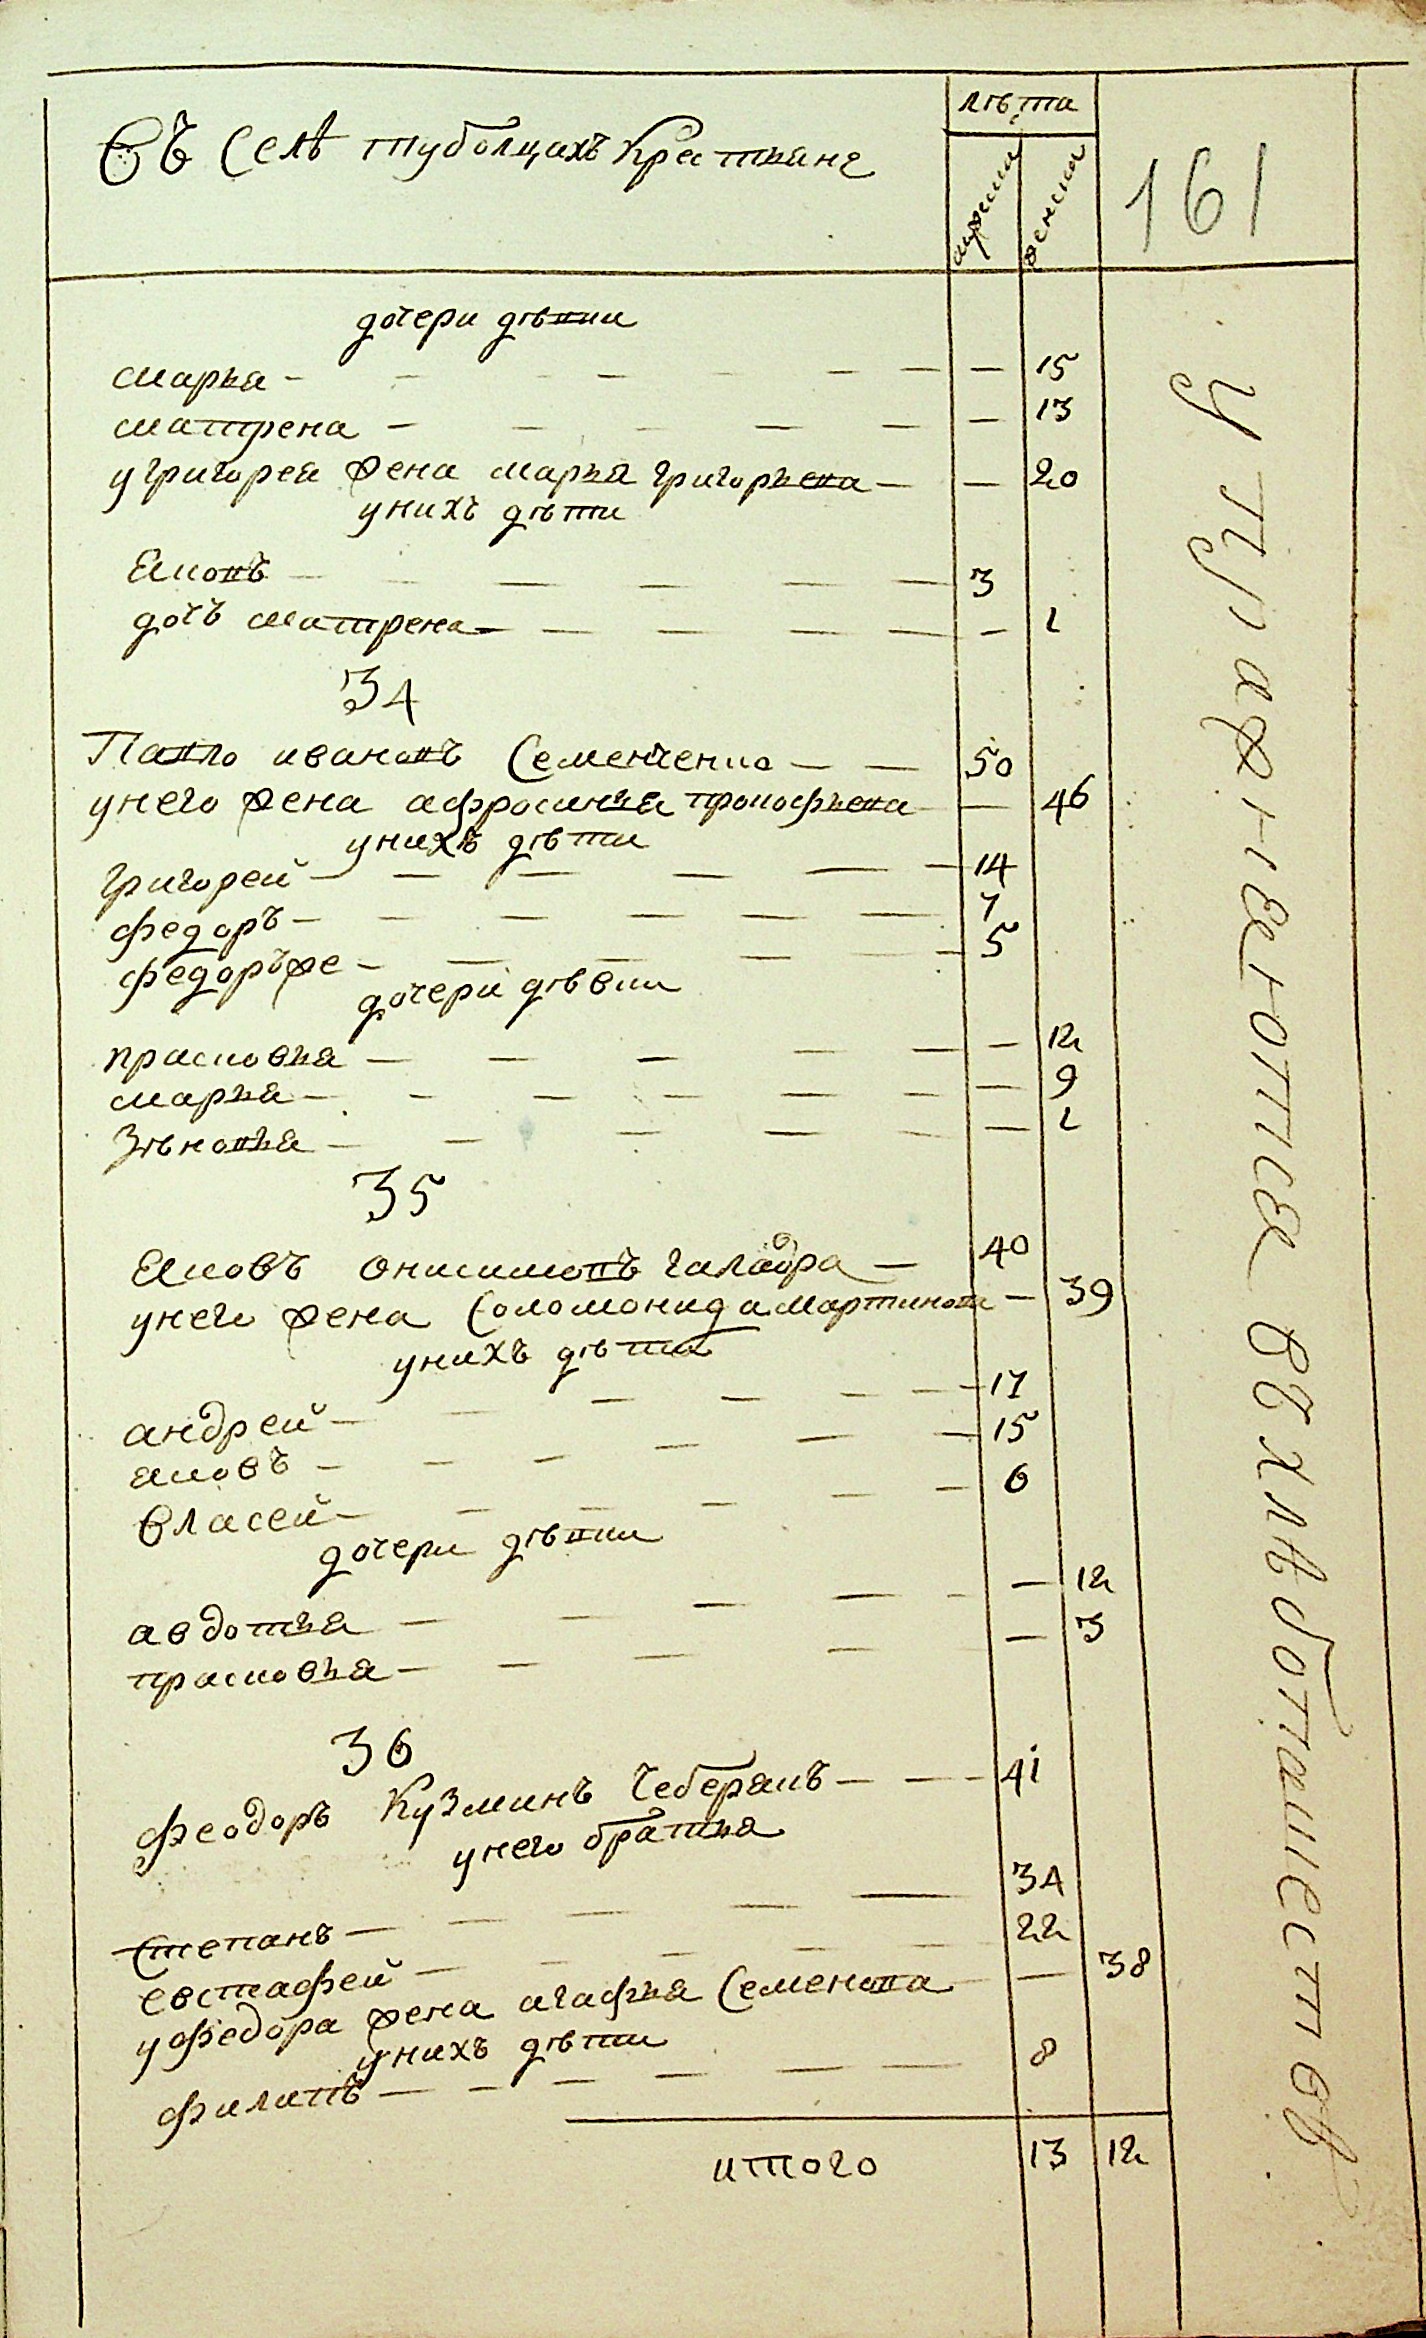 Въ Селѣ туболцахъ Крестьяне
лѣта
мужска
женска
161
дочери дѣвки
марья — — 15
матрена — — 13
у григорея жена марья григорьева — — 20
у нихъ дѣти
яковъ — 3
дочь матрена — — 1
34
Павло ивановъ Семенченко — 50
у него жена афросинья прокофьева — 46
у нихъ дѣти
григорей — 14
федоръ — 7
федоръ же — 5
дочери дѣвки
прасковья — — 12
марья — — 9
Зѣновья — — 1
35
яковъ онисимовъ галабра — 40
у него жена Соломонида мартинова — 39
у нихъ дѣти
андрей — 17
яковъ — 15
власей — 6
дочери дѣвки
авдотья — — 12
прасковья — — 3
36
феодоръ Кузминъ Чеберякъ — 41
у него братья
Степанъ — 34
евстафей — 22
у федора жена агафья Семенова — 38
у нихъ дѣти
филипъ — 8
итого 13 12
упражнеются въ хлѣбопашествѣ